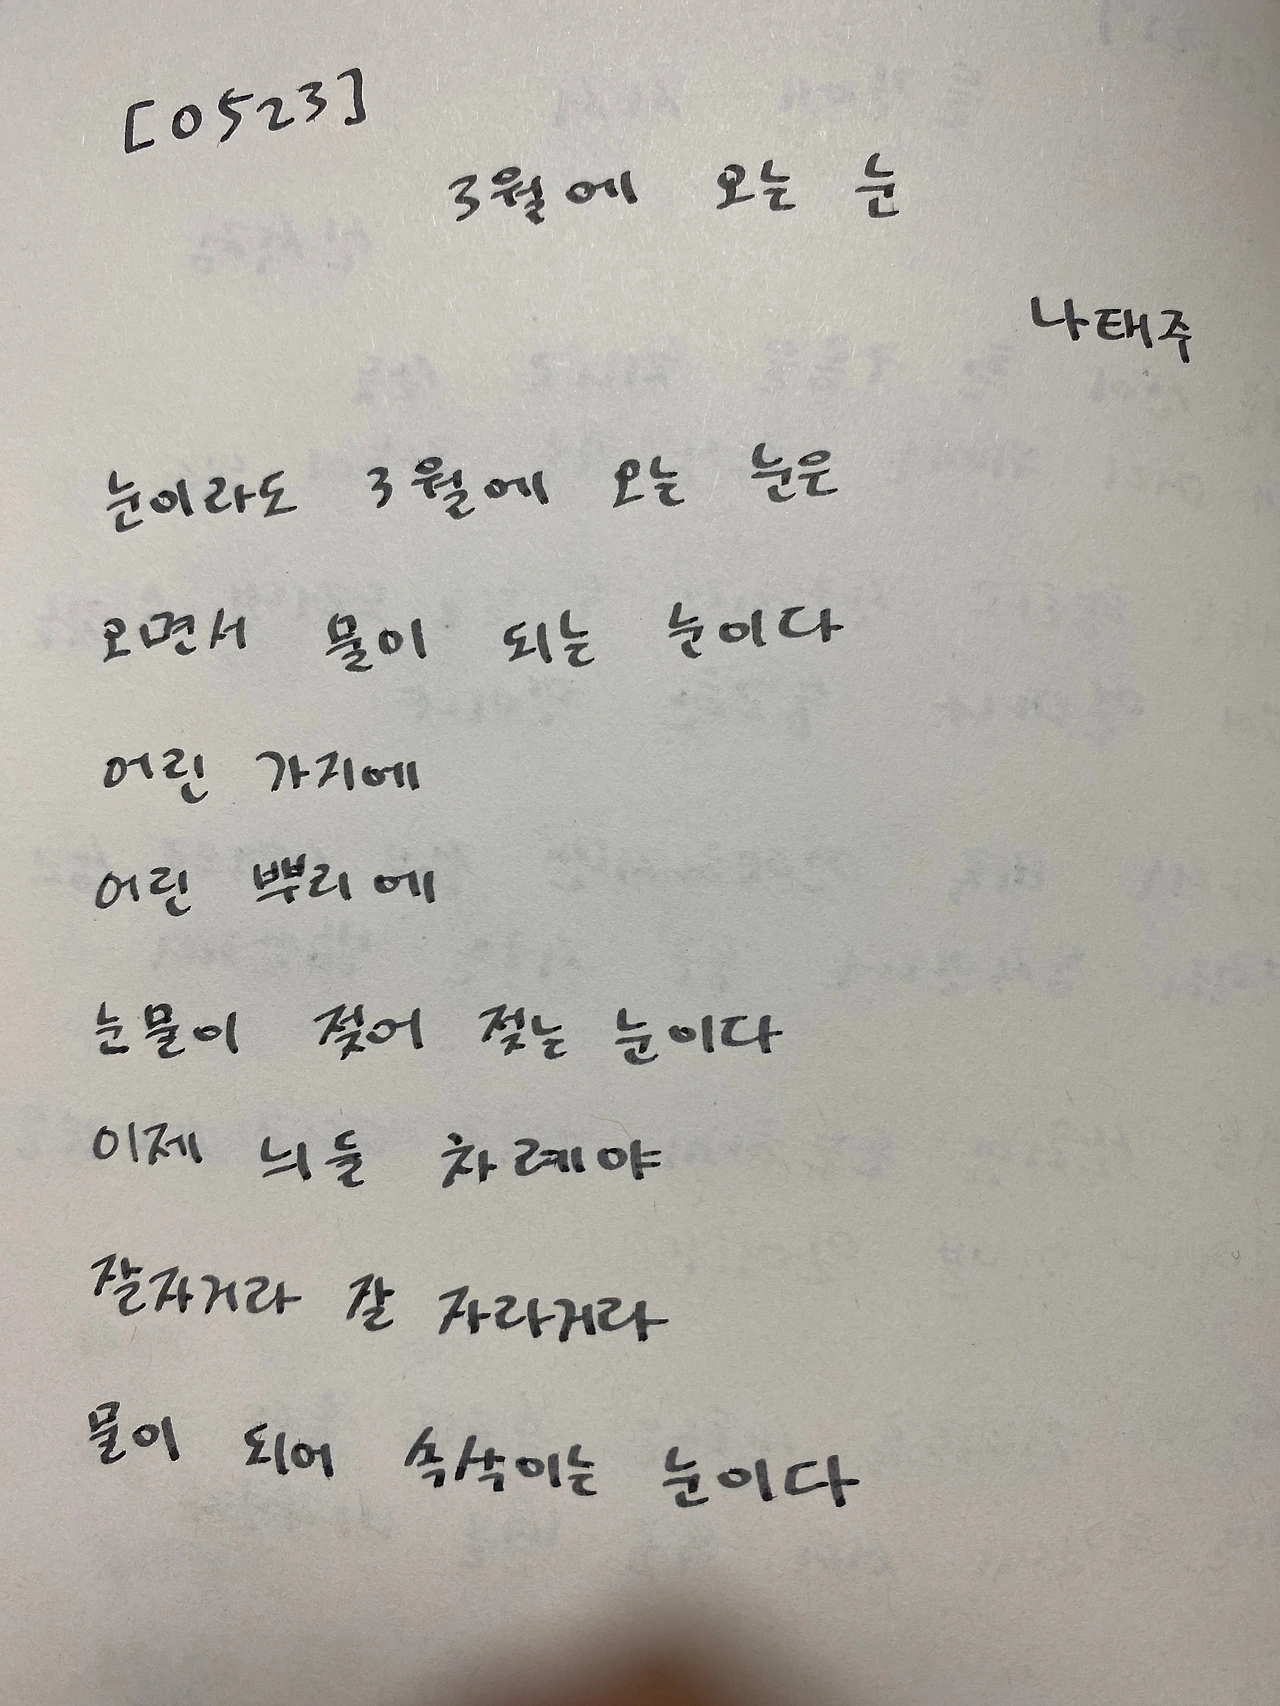 [0523]
3월에 오는 눈
나태주
눈이라도 3월에 오는 눈은
오면서 물이 되는 눈이다
어린 가지에
어린 뿌리에
눈물이 젖어 젖는 눈이다
이제 늬들 차례야
잘자거라 잘 자라거라
물이 되어 속삭이는 눈이다